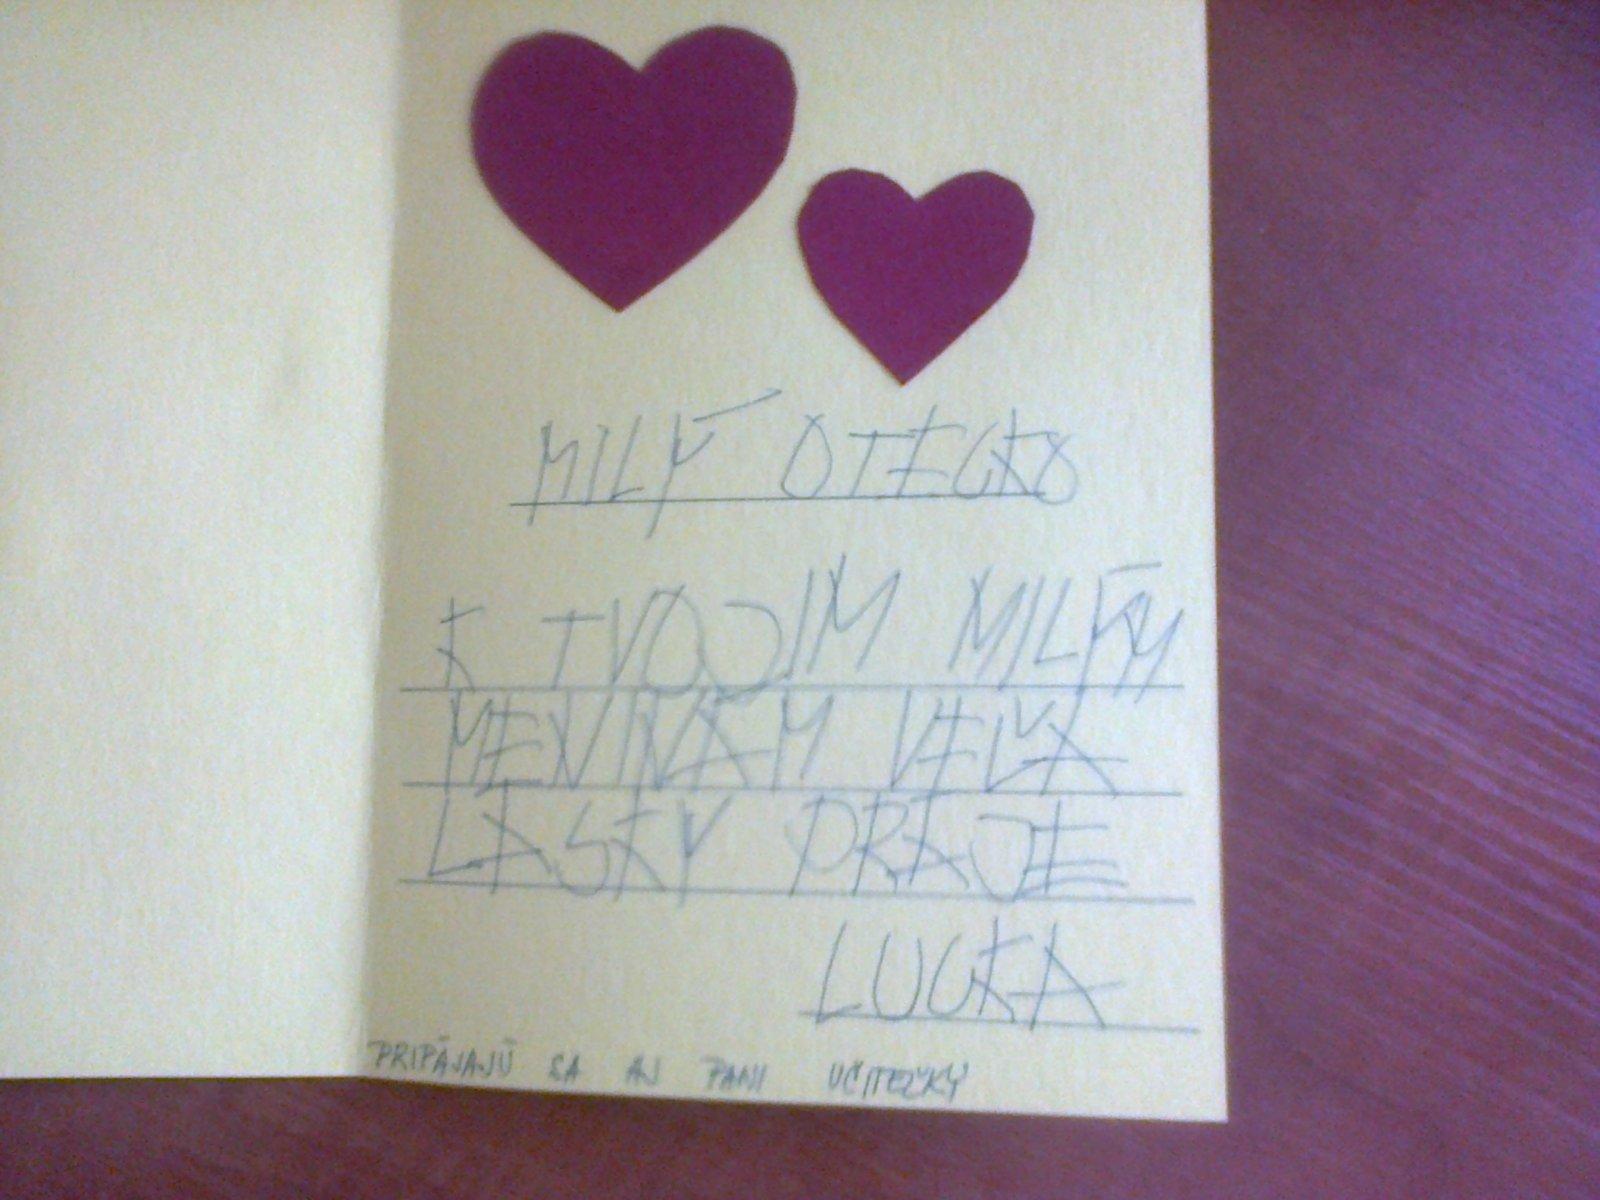 MILÝ OTECKO
K TVOJIM MILÝM
MENINÁM VEĽA
LÁSKY PRAJE
LUCKA
PRIPÁJAJÚ SA AJ PANI UČITEĽKY